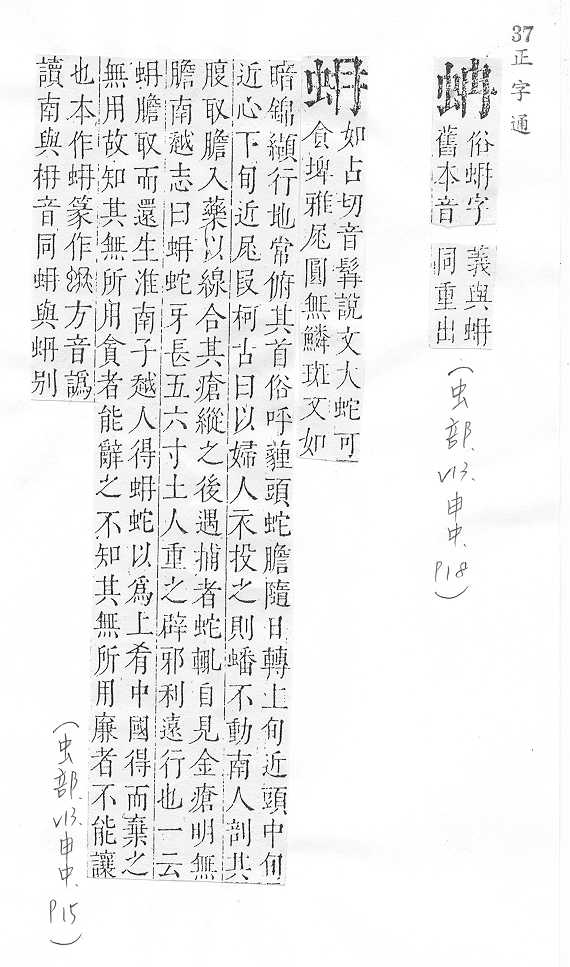 37
正字通
蚺
俗蚦字 義與蚦
舊本音 同重出
(虫部.v13.申中.P18)
蚦
如占切音髥說文大蛇可
食埤雅尾圓無鱗斑文如
暗錦纈行地常俯其首俗呼薶頭蛇膽隨日轉上旬近頭中旬
近心下旬近尾段柯古曰以婦人衣投之則蟠不動南人剖其
腹取膽入藥以線合其瘡縱之後遇捕者蛇輒自見金瘡明無
膽南越志曰蚦蛇牙長五六寸土人重之辟邪利遠行也一云
蚦膽取而還生淮南子越人得蚦蛇以爲上肴中國得而棄之
無用故知其無所用貪者能辭之不知其無所用廉者不能讓
也本作蚦篆作方音譌
讀南與枏音同蚦與蚦别
(虫部.v13.申中.P15)